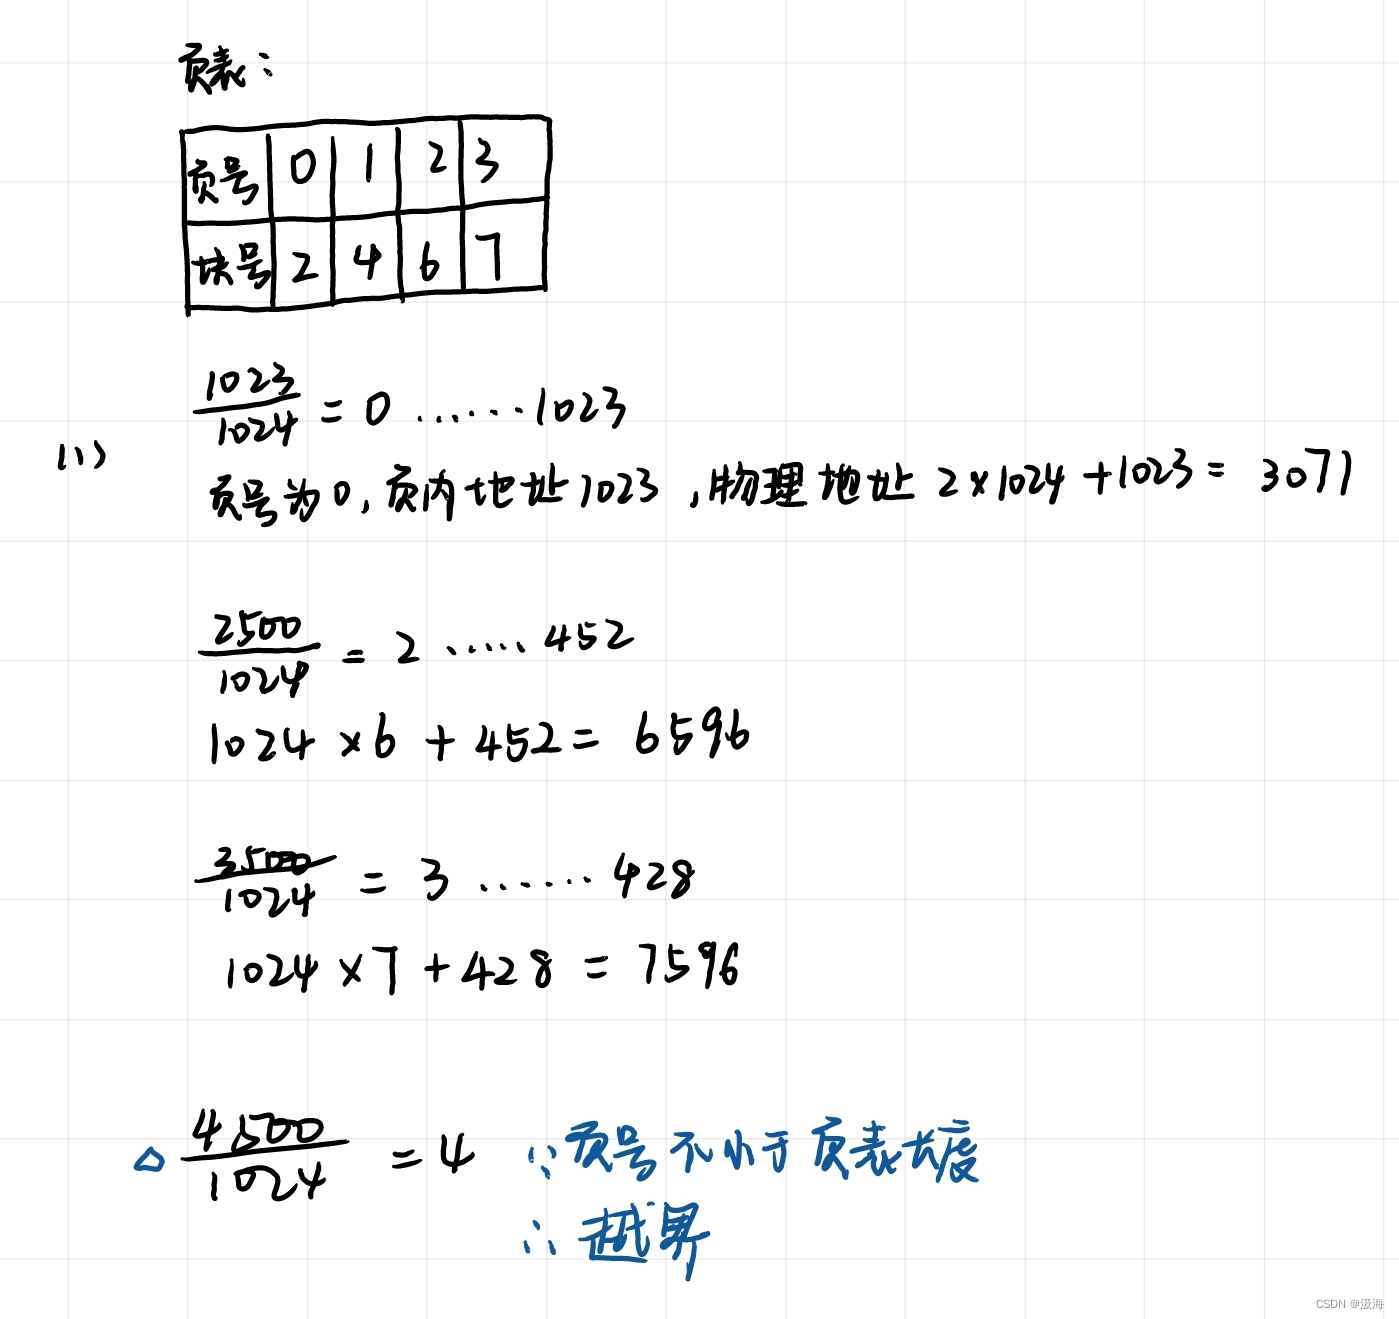 页表：
页号 0 1 2 3
块号 2 4 6 7
1023/1024 = 0 ......1023
(1)
页号为0, 页内地址1023 ,物理地址 2×1024+1023= 3071
2500/1024 = 2 ..... 452
1024×6 + 452= 6596
3500/1024 = 3 ...... 428
1024×7+428 = 7596
△ 4500/1024 =4 ∵页号不小于页表长度
∴越界
CSDN @汲海